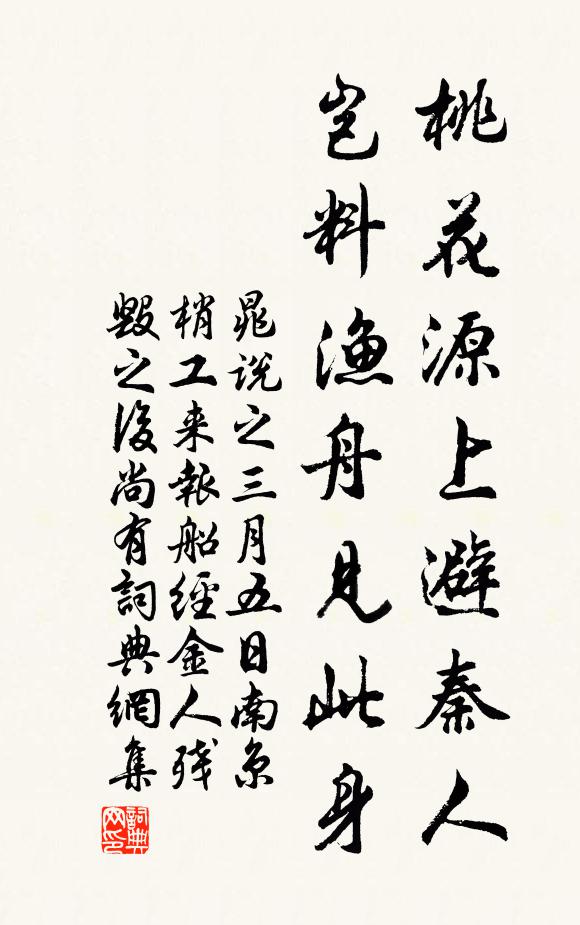 桃花源上避秦人
豈料漁舟見此身
晁說之三月五日南京
梢工来報船經金人残
毀之後尚有詞典網集
詞典
网印